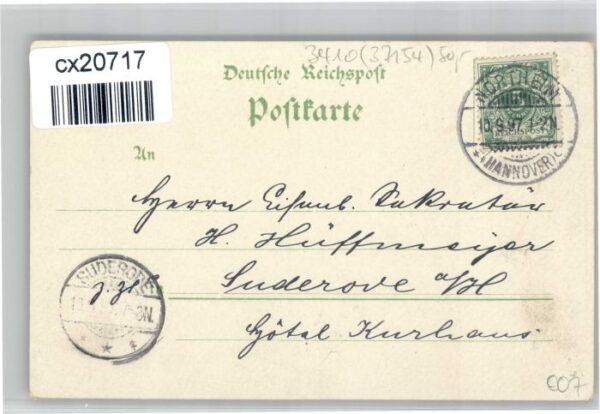 cx20717
3410 (37154) 50,-
Deutsche Reichspost
Postkarte
NORTHEIM
10.9.97.
(HANNOVER)
An
Herrn Eisenb. Sekretär
H. Hüffmeijer
Suderode a/H
Hôtel Kurhaus
SUDERODE
C07